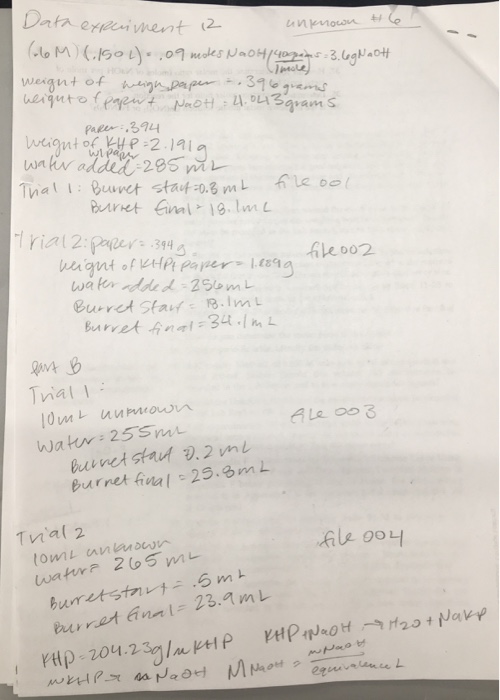 Data experiment 12 unknown #6
(.6M)(.150L) = .09 moles NaOH/40grams = 3.6gNaOH
1mole
weight of weigh paper = .396 grams
weight of paper + NaOH = 4.043 grams
paper = .394
weight of KHP = 2.191g
w/ paper
water added = 285mL
Trial 1: Burret start = 0.8mL file 001
Burret final = 18.1mL
Trial 2: paper = .394g file 002
weight of KHP+ paper = 1.889g
water added = 256mL
Burret Start = 18.1mL
Burret final = 34.1mL
part B
Trial 1:
10mL unknown FILE 003
Water = 255mL
Burret start 0.2mL
Burret final = 25.8mL
Trial 2 file 004
10mL unknown
water = 265mL
Burret start = .5mL
Burret final = 23.9mL
KHP = 204.23g/m KHP KHP + NaOH → H2O + NaKP
mKHP → NaOH M NaOH = mNaOH
equivalence L